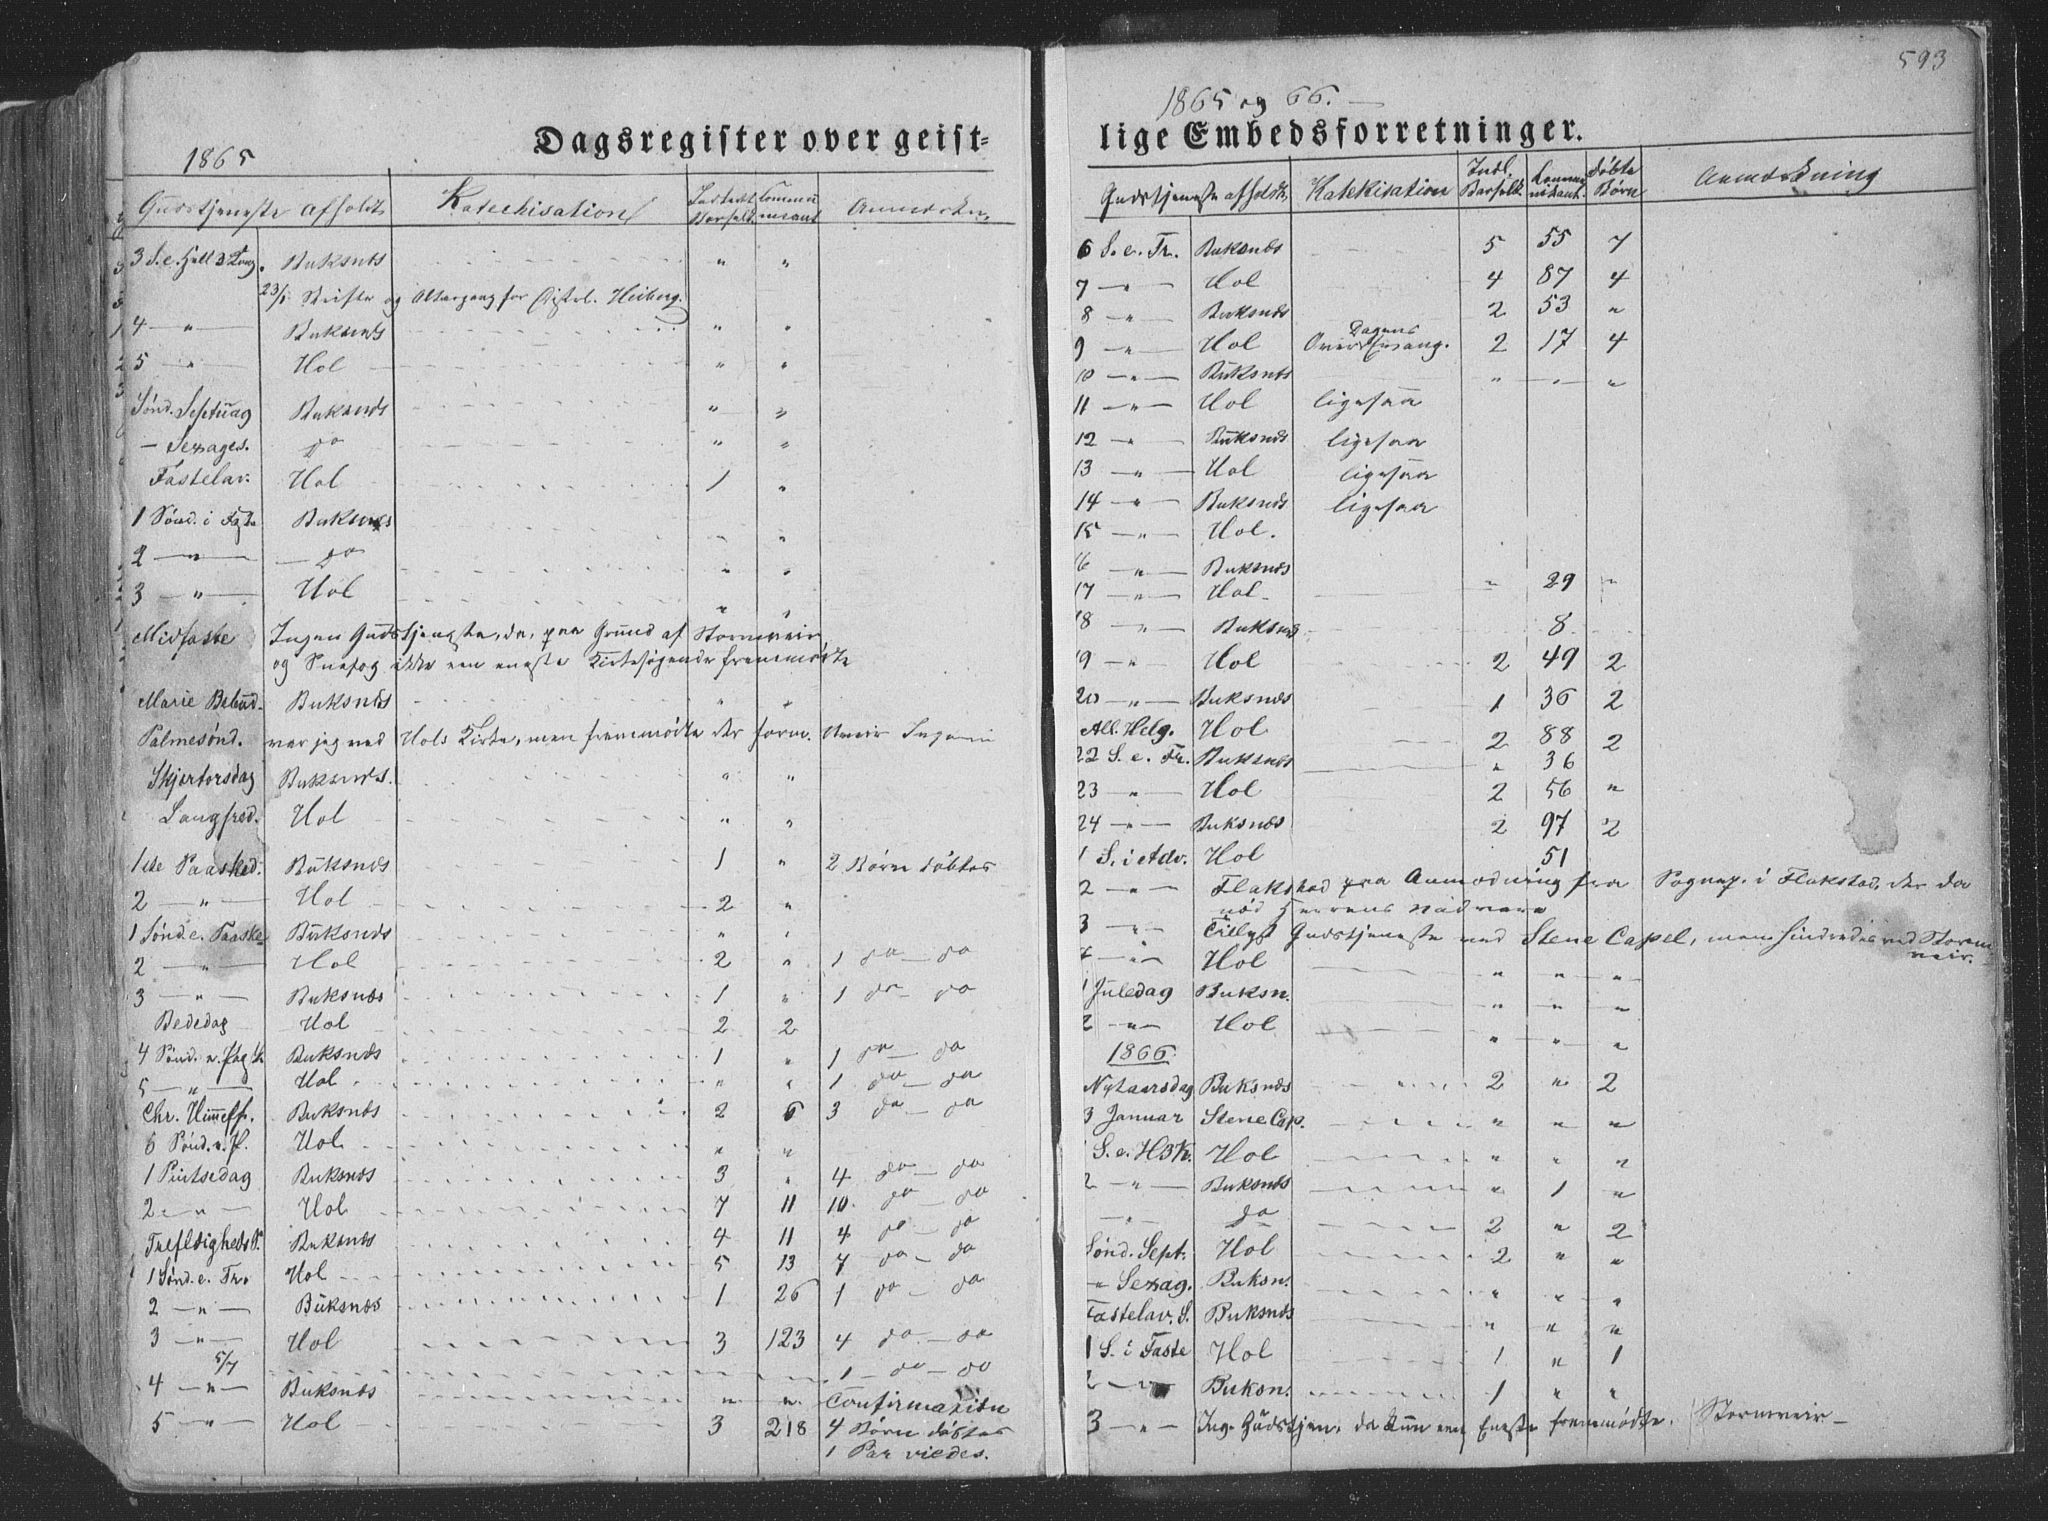 593
1865 og 66.
Dagsregister over geist-
lige Embedsforretninger.
1865
Gudstjeneste afholdt
Katechisation
Communicant
Anmærkn.
3 S. e. Buksnæs " "
23/1 Skrifte og Altergang for Heiberg.
4 — " — Buksnæs " "
5 — " — Hol " "
Sønd. Septuag Buksnæs " "
— Sexages. do " "
Fastelav. Hol 1 "
1 Sønd. i Faste Buksnæs
2 — " — do " "
3 — " — Hol " "
Midfaste Ingen Gudstjeneste, da, paa Grund af Stormveir
og Snefog ikke een eneste Kirkesøgende fremmødte
Marie Bebud. Buksnæs " "
Palmesønd. var jeg ved Hols Kirke, men fremmødte der form. Uveir Ingen
Skjertorsdag Buksnæs. " "
Langfred. Hol " "
1ste Paasked. Buksnæs 1 " 2 Børn døbtes
2 — " — Hol 2 "
1 Sønd. e. Paaske Buksnæs " "
2 — " — Hol 2 " 1 do — do
3 — " — Buksnæs 1 " 1 do — do
Bededag Hol 2 2
4 Sønd. Buksnæs 1 " 1 do — do
5 — " — Hol " " 1 do — do
Chr. Himmelf. Buksnæs 2 6 3 do — do
6 Sønd. Hol " "
1 Pintsedag Buksnæs 3 " 4 do — do
2 — " — Hol 7 11 10 do — do
Trefoldigheds S. Buksnæs 4 11 4 do — do
1 Sønd. e. Tr. Hol 5 13 7 do — do
2 — " — Buksnæs 1 26 1 do — do
3 — " — Hol 3 123 4 do — do
5/7 1 do — do
4 — " — Buksnæs " " Confirmation
5 — " — Hol 3 218 4 Børn døbtes
1 Par viedes.
Gudstjeneste afholdt
Katekisation
Indl. Barselk.
Communikant.
døbte Børn
Anmærkning
6 S. e. Tr. Buksnæs 5 55 7
7 — " — Hol 4 87 4
8 — " — Buksnæs 2 53 "
9 — " — Hol Over Dagens Evang. 2 17 4
10 — " — Buksnæs " " "
11 — " — Hol ligesaa
12 — " — Buksnæs ligesaa
13 — " — Hol ligesaa
14 — " — Buksnæs ligesaa
15 — " — Hol.
16 — " — Buksnæs
17 — " — Hol " 29 "
18 — " — Buksnæs 8
19 — " — Hol 2 49 2
20 — " — Buksnæs 1 36 2
All. Helg. Hol 2 88 2
22 S. e. Tr. Buksnæs " 36
23 — " — Hol 2 56 "
24 — " — Buksnæs 2 97 2
1 S. i Adv. Hol 51
2 — " — Flakstad paa Anmodning fra Sognep. i Flakstad, der da
nød Herrens Nadvere
3 — " — Tillyst Gudstjeneste ved Stene Capel, men hindredes ved Storm
veir.
4 — " — Hol " " "
1 Juledag Buksn. " " "
2 — " — Hol " " "
1866.
Nytaarsdag Buksnæs 2 " 2
3 Januar Stene Cap. " " "
S. e. H3K. Hol " " "
2 — " — Buksnæs " 1 "
— " — do 2 " 2
Sønd. Sept. Hol 2 " "
" Sexag. Buksn. " " "
Fastelav. S. Buksnæs " " "
1 S. i Faste Hol 1 " 1
2 — " — Buksn. 1 " "
3 — " — Ing. Gudstjen. da kun een Eneste fremmødte. Stormveir —